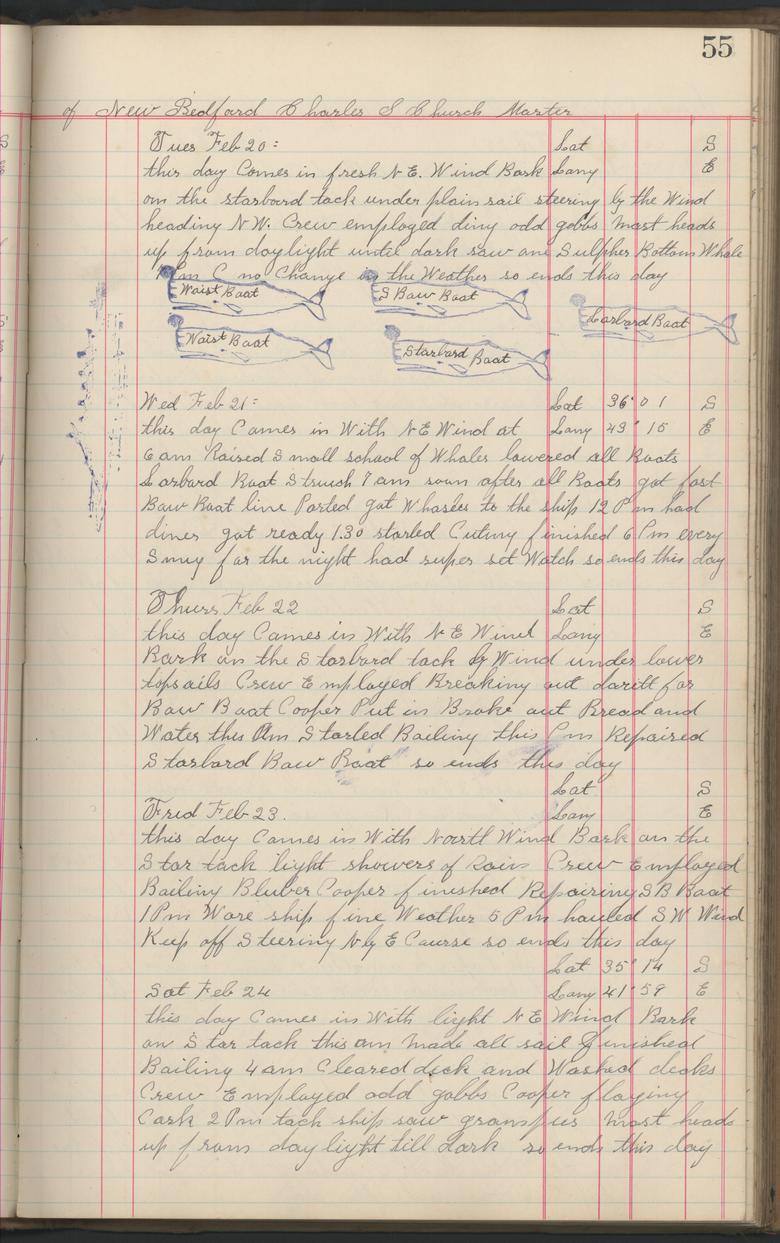 55
of New Bedford Charles S Church Master
Tues Feb 20 = Lat S
this day Comes in fresh N.E. Wind Bark Lany E
on the starbord tack under plain sail steering by the Wind
heading NW. Crew employed diny odd gobbs mast heads
up from daylight until dark saw one Sulpher Bottom Whale
no Change in the Weather so ends this day
Waist Boat
S Baw Boat
Larbord Boat
Waist Boat
Starbord Boat
Wed Feb 21 = Lat 36° 01 S
this day Comes in With N E Wind at Lany 43° 15 E
6 am Raised Small school of Whales lowered all Boats
Larbord Boat Struck 7 am soon after all Boats got fast
Baw Boat line Parted got Whales to the ship 12 Pm had
diner got ready 1.30 started Cutiny finished 6 Pm every
Snug for the night had super set Watch so ends this day
Thurs Feb 22 Lat S
this day Comes in With N E Wind Lany E
Bark on the Starbord tack by Wind under lower
topsails Crew Employed Breaking out daritt for
Baw Boat Cooper Put in Broke out Bread and
Water this Am Started Bailing this Pm Repaired
Starbord Baw Boat so ends this day
Lat S
Frid Feb 23. Lany E
this day Comes in With North Wind Bark on the
Star tack light showers of Rain Crew Employed
Bailiny Bluber Cooper finished Repairiny SB Boat
1 Pm Wore ship fine Weather 5 Pm hauled SW Wind
Keep off Steeriny N by E Caurse so ends this day
Lat 35° 14 S
Sat Feb 24 Lany 41° 59 E
this day Comes in With light N E Wind Bark
on Star tack this am made all sail finished
Bailing 4 am Cleared deck and Washed decks
Crew Employed odd gobbs Cooper flaging
Cask 2 Pm tack ship saw grampus mast heads
up from day light till dark so ends this day